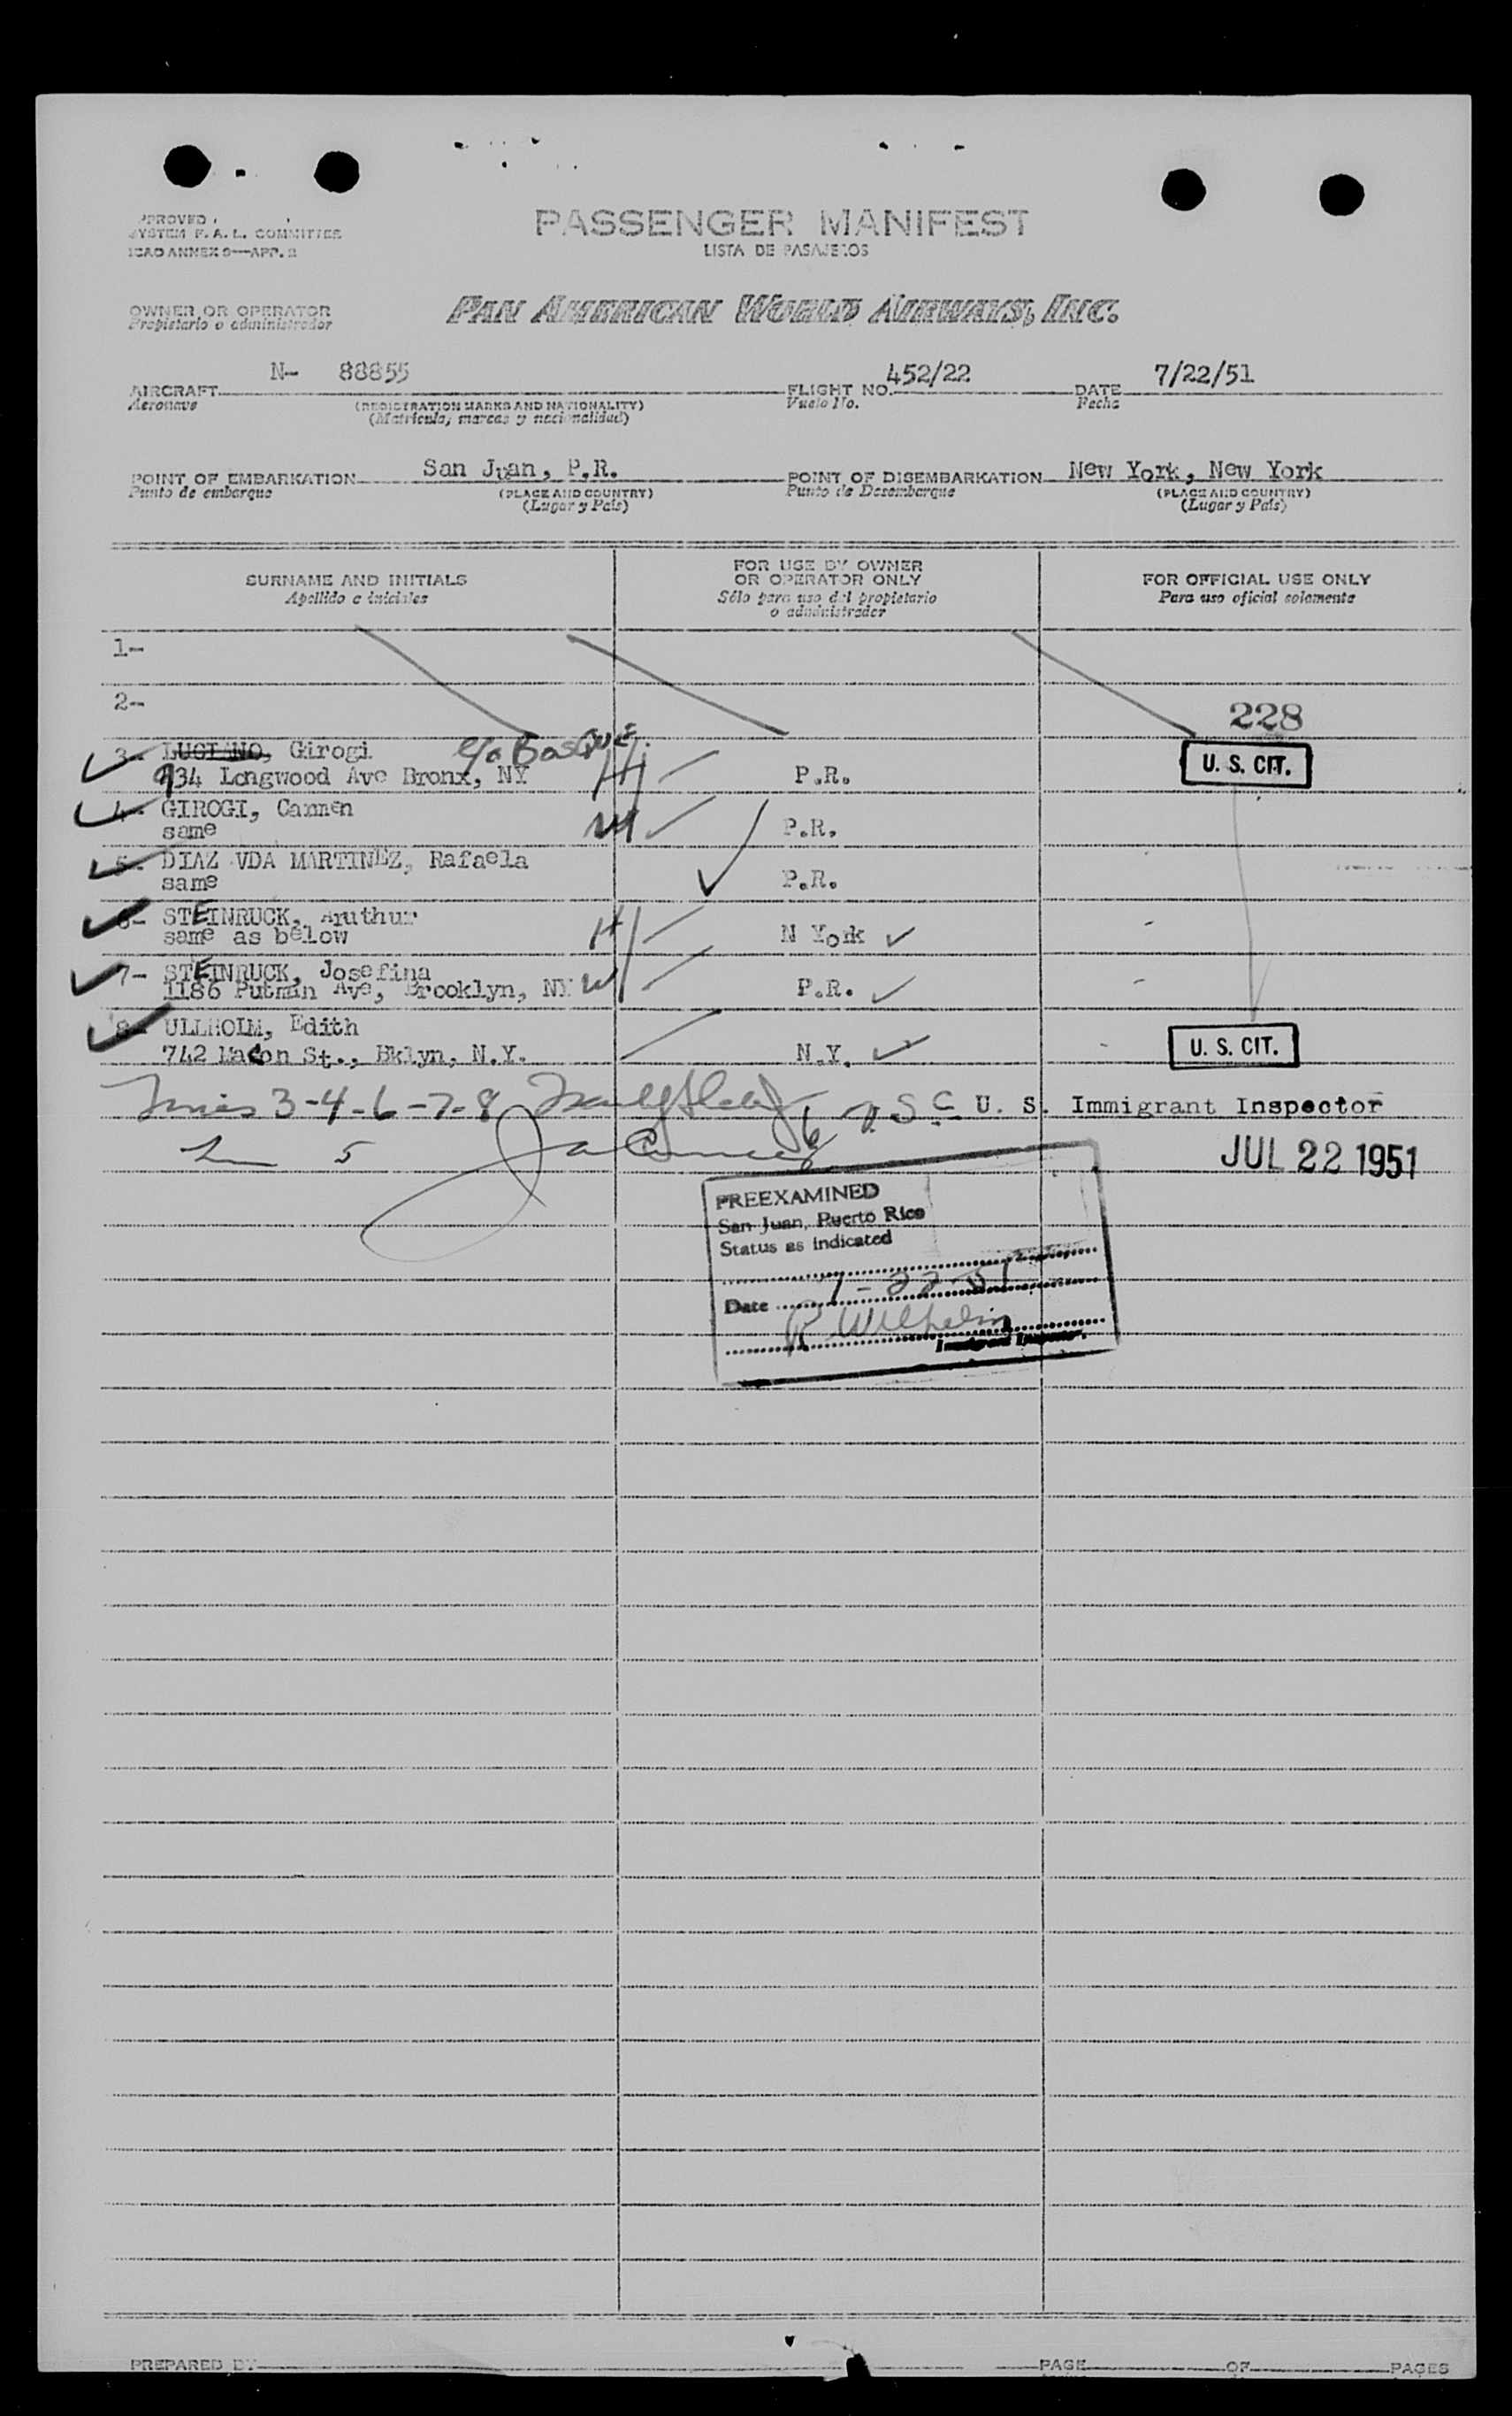 PPROVED
SYSTEM F. A. L. COMMITTEE
ICAO ANNEX 9—APP. 2
PASSENGER MANIFEST
LISTA DE PASAJEROS
OWNER OR OPERATOR
Propietario o administrador
PAN AMERICAN WORLD AIRWAYS, INC.
AIRCRAFT N- 88855 FLIGHT NO. 452/22 DATE 7/22/51
Aeronave (REGISTRATION MARKS AND NATIONALITY) Vuelo No. Fecha
(Matricula, marcas y nacionalidad)
POINT OF EMBARKATION San Juan, P.R. POINT OF DISEMBARKATION New York, New York
Punto de embarque (PLACE AND COUNTRY) Punto de Desembarque (PLACE AND COUNTRY)
(Lugar y País) (Lugar y País)
SURNAME AND INITIALS FOR USE BY OWNER OR OPERATOR ONLY FOR OFFICIAL USE ONLY
Apellido e iniciales Sólo para uso del propietario o administrador Para uso oficial solamente
1-
2- 228
3- LUCIANO, Girogi c/o Basque U. S. CIT.
934 Longwood Ave Bronx, NY H P.R.
4- GIROGI, Carmen
same W P.R.
5- DIAZ VDA MARTINEZ, Rafaela
same P.R.
6- STEINRUCK, Aruthur
same as below H N York
7- STEINRUCK, Josefina
1186 Putman Ave, Brooklyn, NY W P.R.
8- ULLHOIM, Edith U. S. CIT.
742 Macon St., Bklyn, N.Y. N.Y.
3-4-6-7-8 U. S. Immigrant Inspector
5 JUL 22 1951
PREEXAMINED
San Juan, Puerto Rico
Status as indicated
Date 7-22-51
R Wilhelm
Immigrant Inspector.
PREPARED BY PAGE OF PAGES